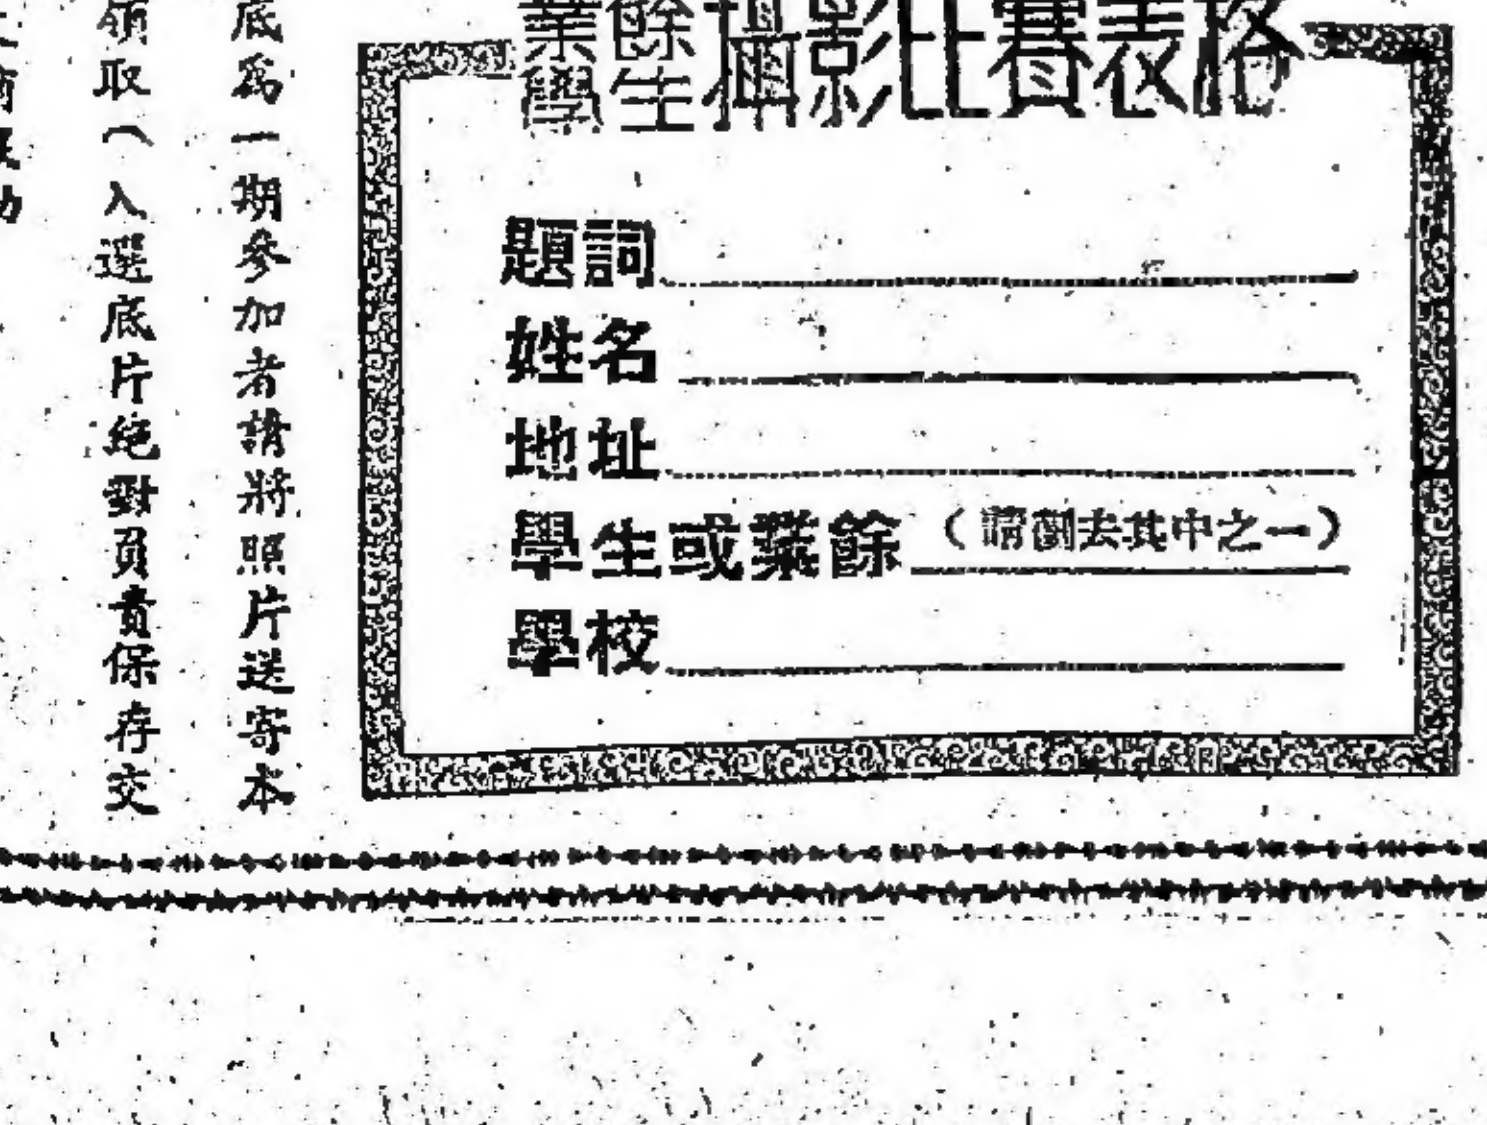 業餘
學生
攝影比賽表格
題詞
姓名
地址
學生或業餘（請劃去其中之一）
學校
底為一期參加者請將照片送寄本
領取（入選底片絕對負責保存交